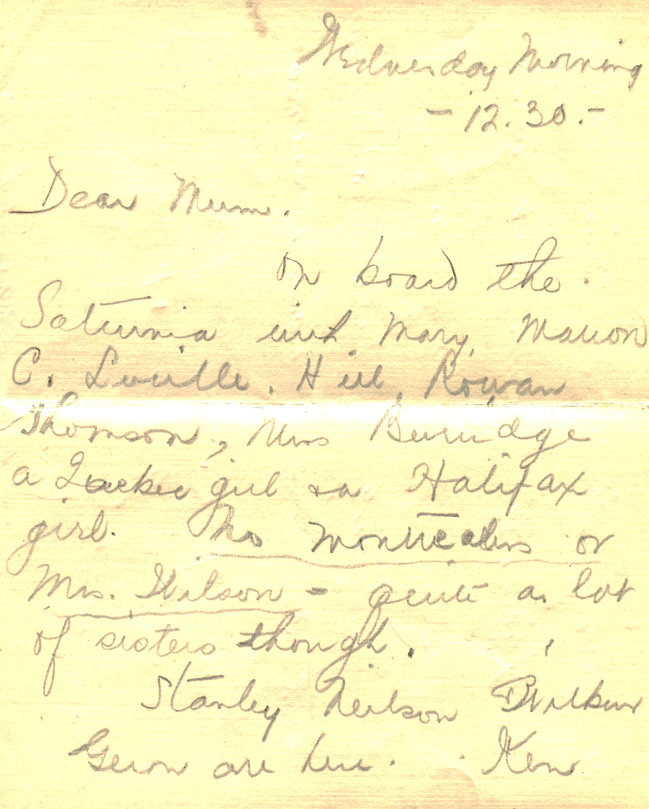 Wednesday Morning
- 12.30. -
Dear Mum.
On board the
Saturnia with Mary, Marion
C. Lucille. Hill, Rowan
Thomson, Mrs Burridge
a Quebec girl & a Halifax
girl. No Montrealers or
Mrs. Wilson - quite a lot
of sisters though.
Stanley Neilson
are here. Ken